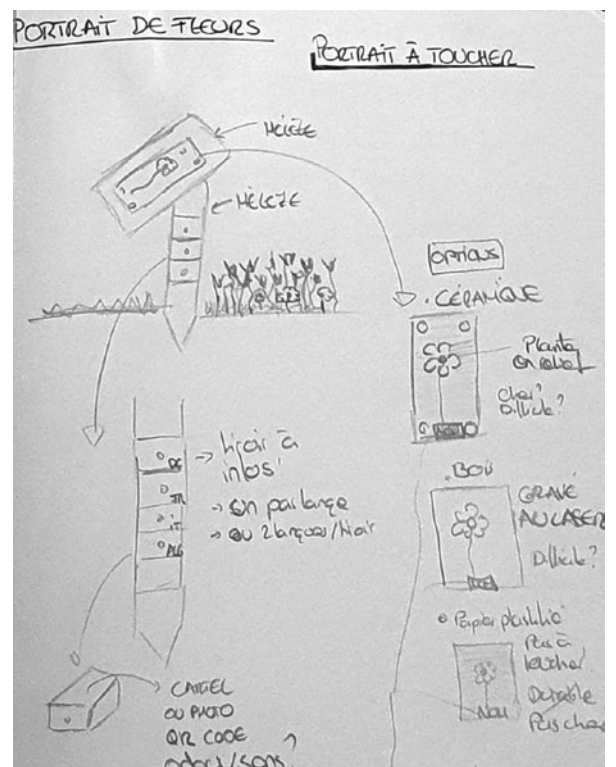 PORTRAIT DE FLEURS
PORTRAIT À TOUCHER
MÉLÈZE
MÉLÈZE
OPTIONS
. CÉRAMIQUE
Plante
en relief
Cher?
Difficile?
NOM
. BOIS
GRAVÉ
AU LASER
Difficile?
• Papier plastifié
Pas à
toucher
Durable
Pas cher
Nom
→ tiroir à
infos
→ un par langue
→ ou 2 langues/tiroir
FR
IT
CARTEL
OU PHOTO
QR CODE
odeurs/sons ?